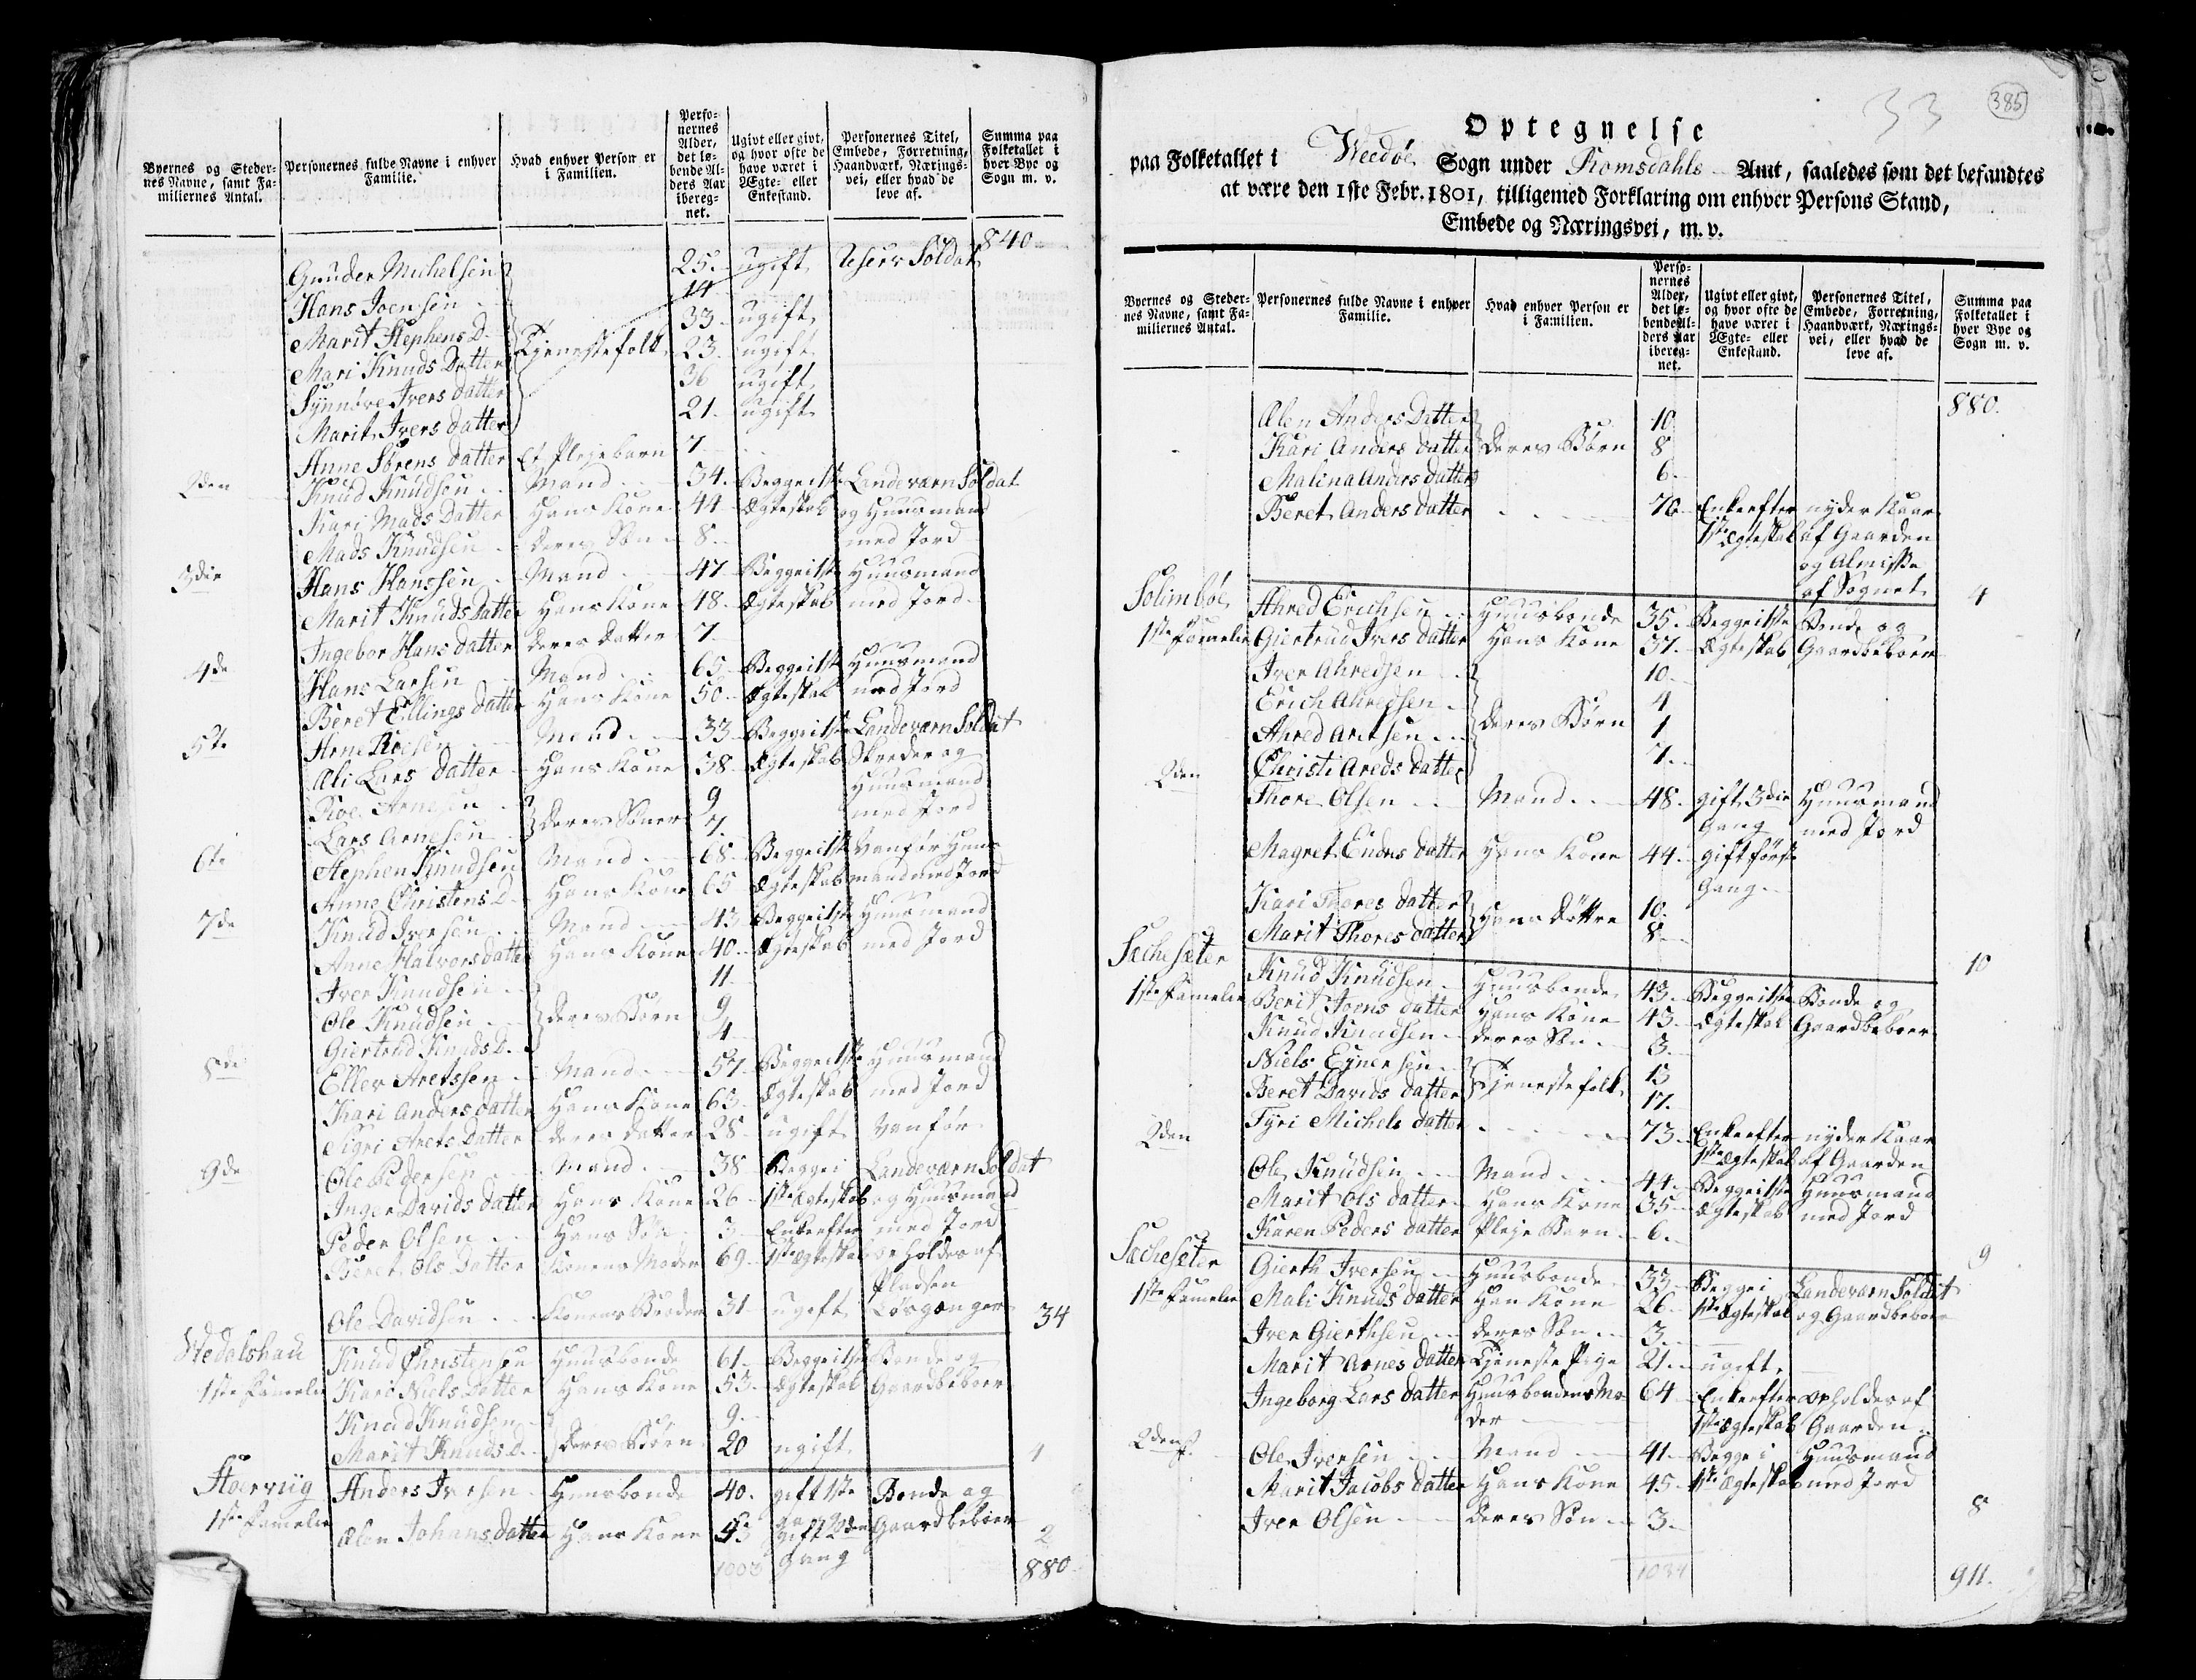 Byernes og Steder-
nes Navne, samt Fa-
miliernes Antal.
Personernes fulde Navne i enhver
Familie.
Hvad enhver Person er
i Familien.
Perso-
nernes
Alder,
det lø-
bende Al-
ders Aar
ibereg-
net.
Ugivt eller givt,
og hvor ofte de
have været i
Ægte- eller
Enkestand.
Personernes Titel,
Embede, Forretning,
Haandværk, Nærings-
vei, eller hvad de
leve af.
Summa paa
Folketallet i
hver Bye og
Sogn m. v.
840
Gunder Michelsen 25. ugift Reserv Soldat
Hans Joensen 14
Marit Stephens D. 33 ugift
Mari Knuds Datter Tjenestefolk 23. ugift
Synnøve Ivers datter 36 ugift
Marit Ivers datter 21. ugift
Anne Sørens datter Et Plejebarn 7
2den Knud Knudsen Mand 34. Begge i 1ste Landeværn Soldat
Kari Mads Datter Hans Kone 44 Ægteskab og Huusmand
Mads Knudsen deres Søn 8 med Jord
3die Hans Hanssen Mand 47 Begge i 1ste Huusmand
Marit Knuds Datter Hans Kone 48 Ægteskab med Jord
Ingebor Hans datter deres datter 7
4de Hans Larsen Mand 65 Begge i 1ste Huusmand
Beret Ellings datter Hans Kone 50 Ægteskab med Jord
5te Arne Roesen Mand 33 Begge i 1ste Landeværn Soldat
Ali Lars datter Hans Kone 38 Ægteskab Skreder og
Roe Arnesen 9 Huusmand
Lars Arnesen deres Sønner 7. med Jord
6te Stephen Knudsen Mand 68 Begge i 1ste Vanfør Huus
Anne Christens D. Hans Kone 65 Ægteskab mand med Jord
7de Knud Iversen Mand 43 Begge i 1ste Huusmand
Anne Halvors datter Hans Kone 40 Ægteskab med Jord
Iver Knudsen 11
Ole Knudsen deres Børn 9
Giertrud Knuds D. 4
8de Eller Aretssen Mand 57 Begge i 1ste Huusmand
Kari Anders datter Hans Kone 63 Ægteskab med Jord
Sigri Arets Datter deres datter 28 ugift Vanfør
9de Ole Pedersen Mand 38 Begge i Landeværn Soldat
Inger Davids datter Hans Kone 26 1ste Ægteskab og Huusmand
Peder Olsen Hans Søn 3 Enke efter med Jord
Beret Ols Datter Konens Moder 69 1ste Ægteskab opholdes af
Pladsen
Ole Davidsen Konens Broder 31 ugift Løsgænger 34
Knud Christensen Huusbonde 61 Begge i 1ste Bonde og
1ste Familie Kari Niels Datter Hans Kone 53 Ægteskab Gaardbeboer
Knud Knudsen 9
Marit Knuds D. deres Børn 20 ugift 4
Anders Iversen Huusbonde 40. gift 1ste Bonde og
1ste Familie Ælen Johans datter Hans Kone 43 gift 2den Gaardbeboer 2
1003 Gang 880
385
33
Optegnelse
paa Folketallet i Weedøe Sogn under Romsdahls Amt, saaledes som det befandtes
at være den 1ste Febr. 1801, tilligemed Forklaring om enhver Persons Stand,
Embede og Næringsvei, m. v.
Byernes og Steder-
nes Navne, samt Fa-
miliernes Antal.
Personernes fulde Navne i enhver
Familie.
Hvad enhver Person er
i Familien.
Perso-
nernes
Alder,
det lø-
bende Al-
ders Aar
ibereg-
net.
Ugivt eller givt,
og hvor ofte de
have været i
Ægte- eller
Enkestand.
Personernes Titel,
Embede, Forretning,
Haandværk, Nærings-
vei, eller hvad de
leve af.
Summa paa
Folketallet i
hver Bye og
Sogn m. v.
880.
Ælen Anders Datter 10
Kari Anders datter deres Børn 8
Malina Anders datter 6
Beret Anders datter 70 Enke efter nyder Kaar
1ste Ægteskab af Gaarden
og Almisse
af Sognet 4
Solimbøe Ahred Erichsen Huusbonde 35. Begge i 1ste Bonde og
1ste Familie Giertrud Ivers datter Hans Kone 37. Ægteskab Gaardbeboer
Iver Ahredsen 10
Erich Ahredsen 4
Ahred Aretsen deres Børn 1
Christi Areds datter 7
2den Thore Olsen Mand 48. gift 3die Huusmand
Gang med Jord
Magret Endres datter Hans Kone 44. gift første
Gang
Kari Thores datter 10.
Marit Thores datter Hans døttre 8
10
Sæchesæter Knud Knudsen Huusbonde 43. Begge i 1ste Bonde og
1ste Familie Berit Joens datter Hans Kone 43 Ægteskab Gaardbeboer
Knud Knudsen deres Søn 3
Niels Ejnersen 13
Beret Davids datter Tjenestefolk 17.
Tyri Michels datter 73 Enke efter nyder Kaar
1ste Ægteskab af Gaarden
2den Ole Knudsen Mand 44 Begge i 1ste Huusmand
Marit Ols datter Hans Kone 35 Ægteskab med Jord
Karen Peders datter Pleje Barn 6
9
Sæchesæter Gierth Iversen Huusbonde 33 Begge i Landeværn Soldat
1ste Familie Mali Knuds datter Han Kone 26 1ste Ægteskab og Gaardbeboer
Iver Gierthsen deres Søn 3
Marit Arnes datter Tjeneste Pige 21 ugift
Ingeborg Lars datter Huusbondens Mo- 64 Enke efter opholdes af
der 1ste Ægteskab Gaarden
2den Ole Iversen Mand 41 Begge i Huusmand
Marit Jacobs datter Hans Kone 45 1ste Ægteskab med Jord
Iver Olsen deres Søn 3
8
1034 911.